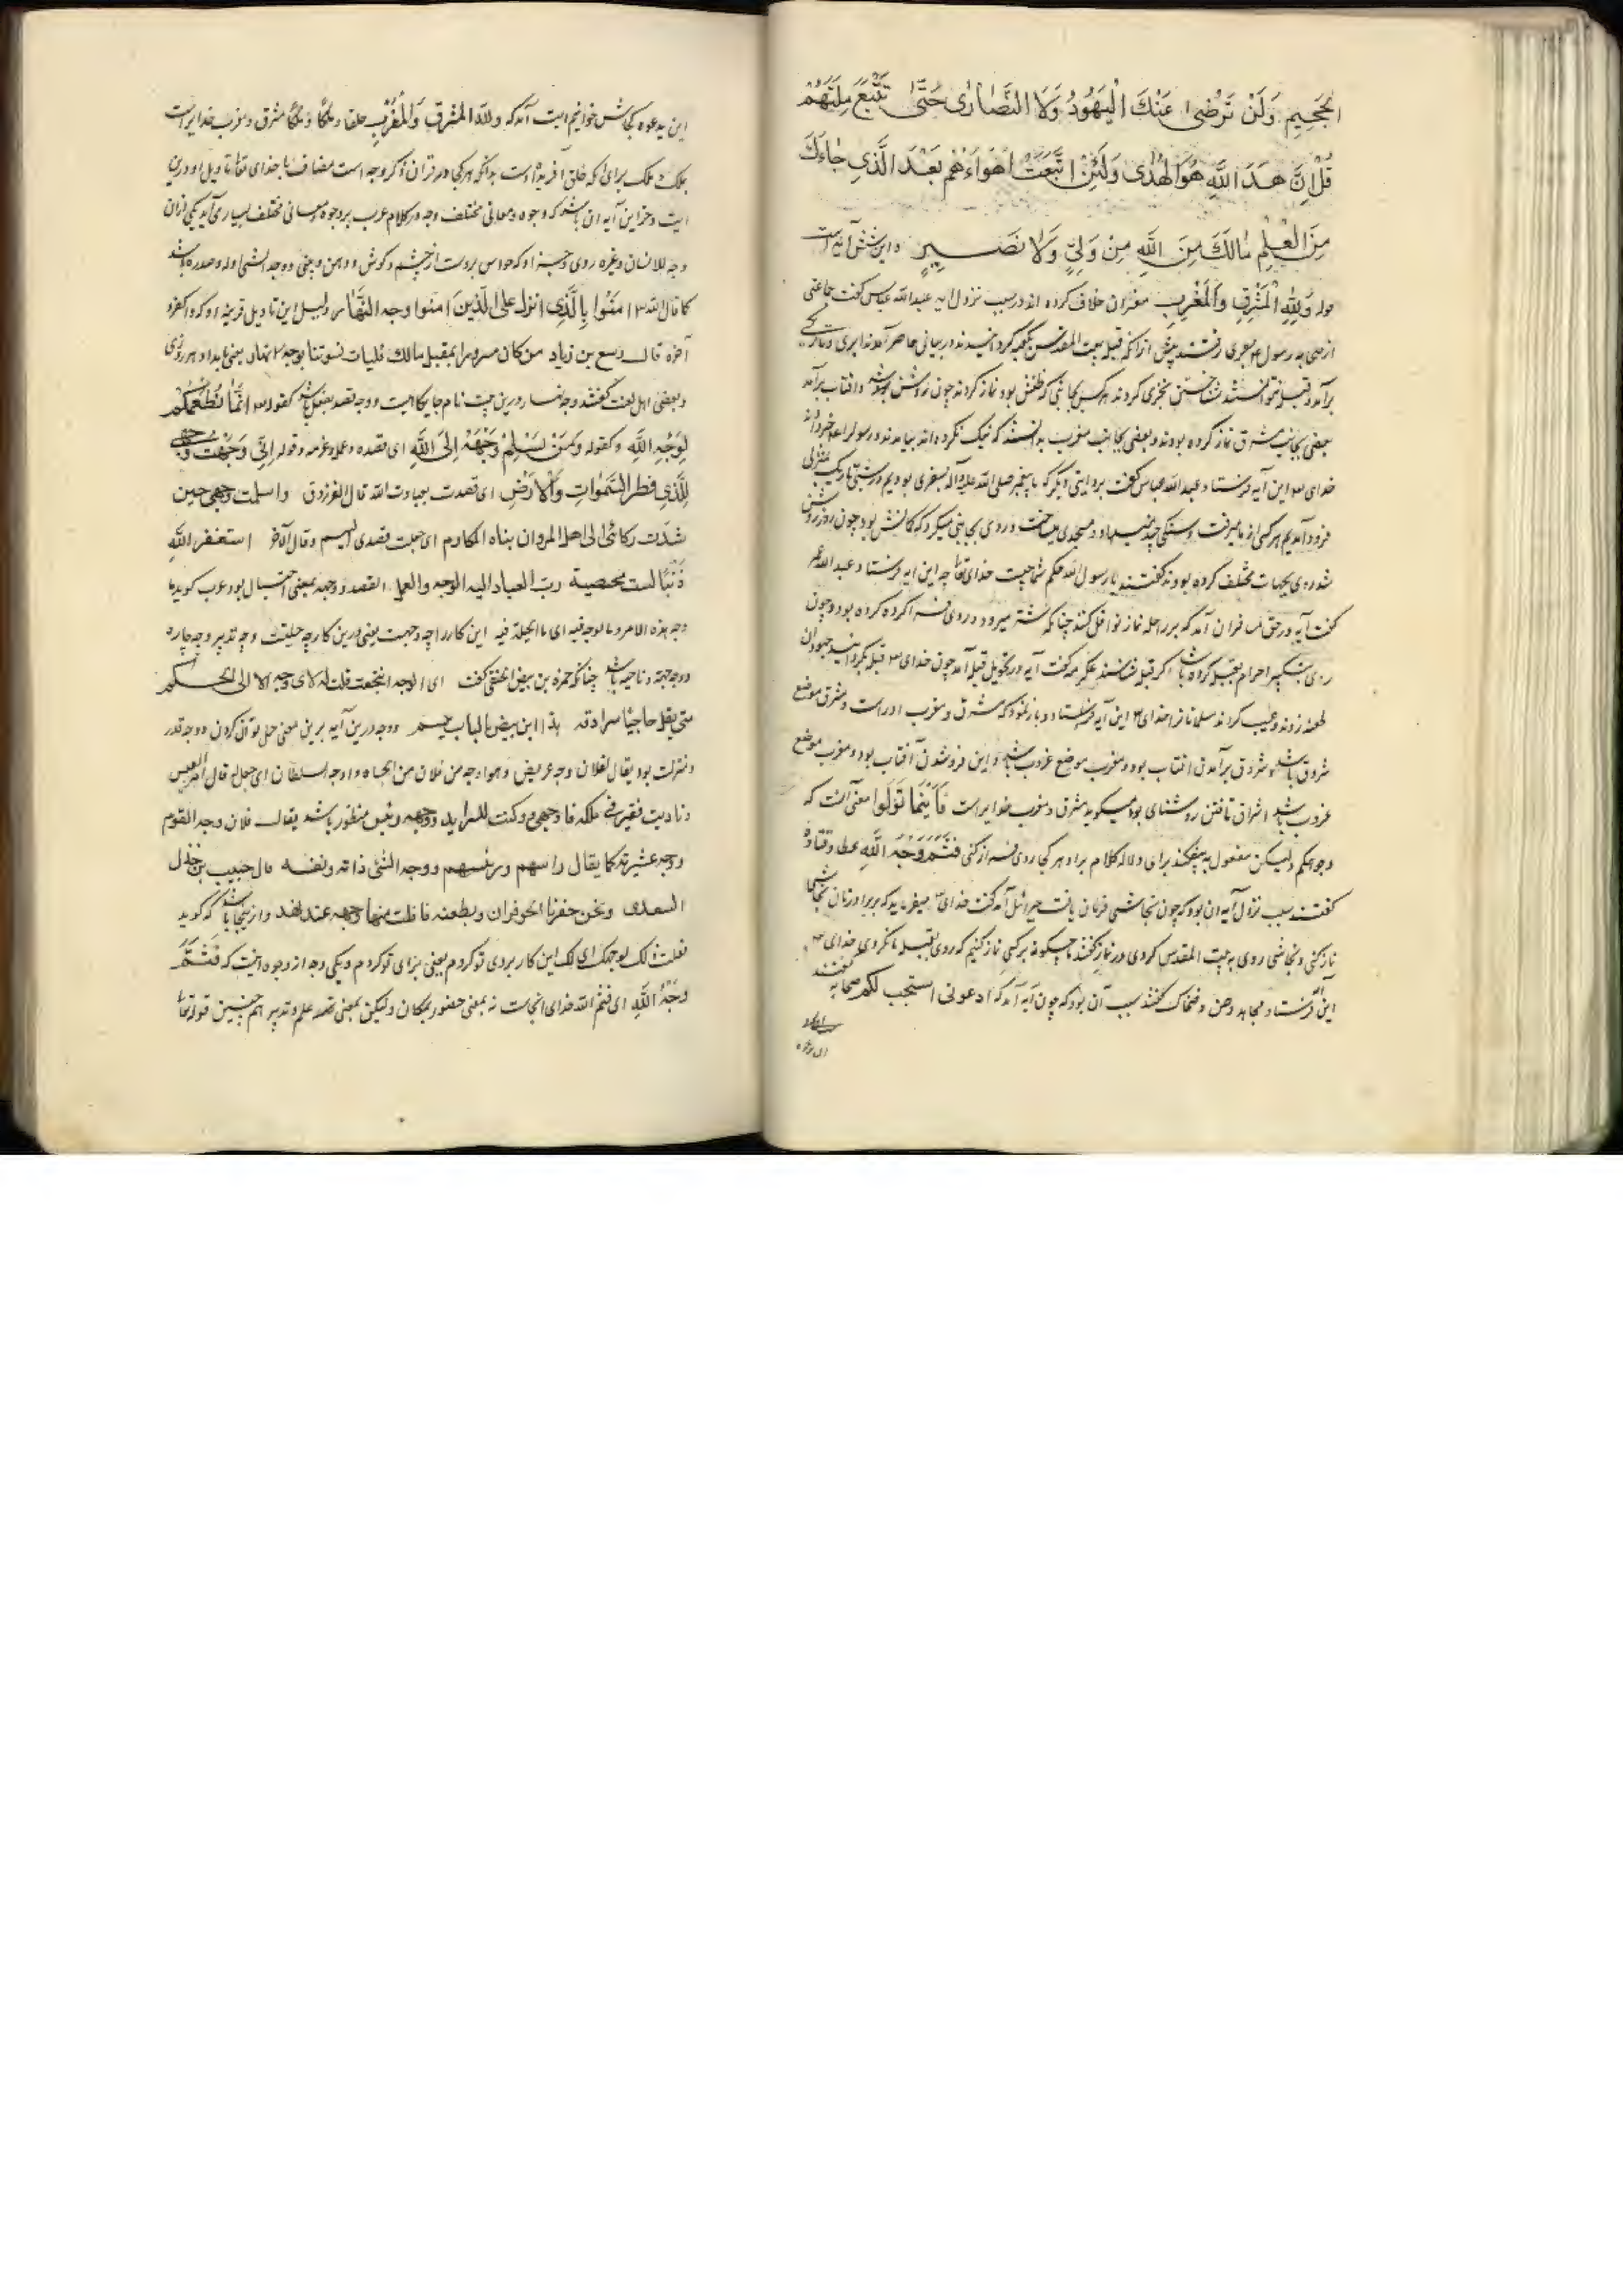 الْجَحِيمِ وَلَنْ تَرْضىٰ عَنْكَ الْيَهُودُ وَلَا النَّصَارٰى حَتّٰى تَتَّبِعَ مِلَّتَهُمْ
قُلْ اِنَّ هُدَى اللّٰهِ هُوَ الْهُدٰى وَلَئِنْ اتَّبَعْتَ اَهْوَاءَهُمْ بَعْدَ الَّذِي جَاءَكَ
مِنَ الْعِلْمِ مَالَكَ مِنَ اللّٰهِ مِنْ وَلِيٍّ وَلَا نَصِيرٍ ه این شش آیه است
قوله وَلِلّٰهِ الْمَشْرِقُ وَالْمَغْرِبُ مفسران خلاف کرده اند در سبب نزول آیه عبدالله عباس گفت جماعتی
از صحابه رسول بسفری رفتند پیش از آنکه قبله بیت المقدس بکعبه گردانیدند
برآمد قبله نتوانستند شناختن تحری کردند هر کس بجانبی که ظنش بود نماز کردند چون روشن شد و آفتاب برآمد
بعضی بجانب مشرق نماز کرده بودند و بعضی بجانب مغرب بدانستند که نیک نکرده اند بیامدند و رسول را خبر دادند
خدای این آیه فرستاد و عبدالله عباس گفت بروایتی دیگر که با پیغمبر صلی الله علیه و آله بسفری بودیم در شبی تاریک بمنزلی
فرود آمدیم هر کسی از ما میرفت و سنگی چند مینهاد و مسجدی میساخت و روی بجانبی میکرد که گمانش بود چون روز روشن
شد روی بجهات مختلف کرده بودند گفتند یا رسول الله حکم ما چیست خدای تعالی این آیه فرستاد و عبدالله عمر
گفت آیه در حق مسافران آمد که بر راحله نماز نوافل کنند چنانکه شتر میرود و روی فرا کرده کرده بود و چون
روی بتکبیر احرام بقبله کرده باشد اگر قبله شناسند عکرمه گفت آیه در تحویل قبله آمد چون خدای قبله بگردانید جهودان
طعنه زدند و عیب کردند مسلمانانرا خدای این آیه فرستاد و باز نمود که مشرق و مغرب اوراست و مشرق موضع
شروق باشد و شروق برآمدن آفتاب بود و مغرب موضع غروب باشد و این فروشدن آفتاب بود و مغرب موضع
غروب باشد اشراق تافتن روشنای بود میگوید مشرق و مغرب خدایراست فَأَيْنَمَا تُوَلُّوا معنی آنست که
وجوهکم ولیکن مفعول بیفکند برای دلاله کلام برو و هر کجا روی فرا کنی فَثَمَّ وَجْهُ اللّٰهِ عطا و قتاده
گفتند سبب نزول آیه آن بود که چون نجاشی فرمان یافت جبرائیل آمد گفت خدای میفرماید که بر برادرتان نجاشی
نماز کنی و نجاشی روی به بیت المقدس کردی در نماز گفتند ما چگونه بر کسی نماز کنیم که روی بقبله ما نکردی خدای
این آیه فرستاد و مجاهد و حسن و ضحاک گفتند سبب آن بود که چون آیه آمد که ادعونی استجب لکم صحابه گفتند
این بدعوه کجاش خوانیم این آیت آمد که وَلِلّٰهِ الْمَشْرِقُ وَالْمَغْرِبُ خلقا و ملکًا و مُلکًا مشرق و مغرب خدایراست
بملک و مُلک برای آنکه خلق آفریده اوست بدانکه هر کجا در قرآن ذکر وجه است مضاف با خدای تعالی تاویل او درین
آیت و جز این آیه آن باشد که وجوه و معانی مختلف وجه در کلام عرب بر وجوه و معانی مختلف بسیار می آید یکی از آن
وجه للانسان و غیره روی و چیز او که حواس بروست از چشم و گوش و دهن و بینی و وجه الشی اوله و صدره باشد
کما قال الله اٰمَنُوا بِالَّذِي انزل عَلَى الَّذِينَ اٰمنوا وجه النَّهَارِ دلیل این تاویل قرینه او که و اکفروا
آخره قال ربیع بن زیاد من کان مسرورا بمقتل مالک فلیات نسوتنا بوجه نهار یعنی بامداد هر روزی
و بعضی اهل لغت گفتند وجه نهار درین بیت نام جایگاهیست و وجه قصد بفعل باشد کقوله اِنَّمَا نُطْعِمُكُمْ
لِوَجْهِ اللّٰهِ وکقوله وَمَنْ يُسْلِمْ وَجْهَهُ اِلَى اللّٰهِ ای قصده وعمله وعزمه و قوله اِنِّي وَجَّهْتُ وَجْهِيَ
لِلَّذِي فَطَرَ السَّمٰوَاتِ وَالْاَرْضَ ای قصدت بعبادت الله قال الفرزدق واسلمت وجهی حین
شدّت رکائبی الی اهل المروان بناه المکارم ای جعلت قصدی الیهم وقال آخر استغفر الله
ذَنْبًا لست محصیه ربّ العباد الیه الوجه والعمل القصد و وجه بمعنی احتیال بود عرب گوید ما
وجه هذه الامر وما الوجه فیه ای ما الحیلة فیه این کار را چه وجهست یعنی درین کار چه حیلتست و چه تدبیر و چه چاره
و وجه جهة و ناحیه باشد چنانکه حمزه بن بیض الحنفی گفت ای الوجه انتجعت قلت له لای وجه الا الی الحکم
متی یقل حاجبا سرادقه هذا ابن بیض بالباب یبتسم و وجه درین آیه برین معنی حمل توان کردن و وجه قدر
و منزلت بود یقال لفلان وجه عریض وهو اوجه من فلان من الجاه و اوجه السلطان ای جعل قال امرء القیس
و نادیت قیصر فی ملکه فاوجهنی و کنت البرید و وجه رئیس منظور باشد یقال فلان وجه القوم
ووجه عشیرته کما یقال راسهم ورئیسهم ووجه الشئ ذاته ونفسه قال حبیب بن خذل
السعدی ونحن حفزنا الحوفزان وبطعنه فافلت منها وجهه عتد نهد و ازینجا باشد که گوید
فعلت ذلک لوجهک ای لک این کار بروی تو کردم یعنی برای تو کردم و یکی وجه از وجوه اینست که فَثَمَّ
وَجْهُ اللّٰهِ ای فثم الله خدای آنجاست نه بمعنی حضور بمکان ولیکن بمعنی علم و تدبیر همچنین قوله تعالی